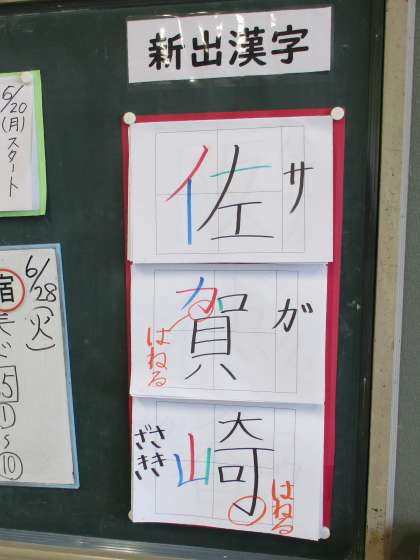 新出漢字
佐 サ
賀 ガ
はねる
崎 さき
ざき
はねる
6/20
(月)スタート
6/28(火)
宿
5
①
〜
⑩